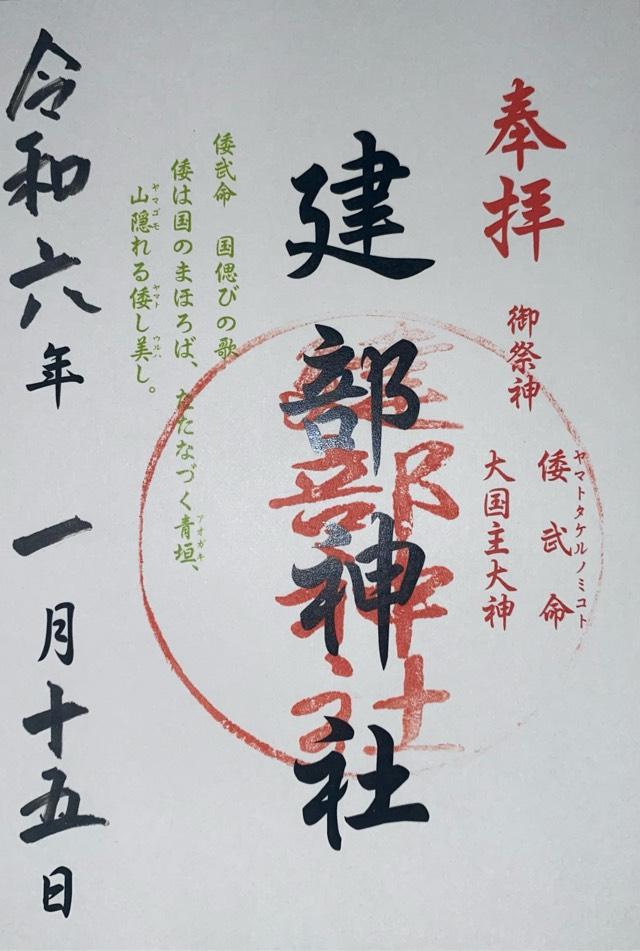 奉拝
御祭神
倭武命
ヤマトタケルノミコト
大国主大神
建部神社
建部神社
倭武命 国偲びの歌
倭は国のまほろば、たたなづく青垣、
アオガキ
山隠れる倭し美し。
ヤマゴモ
ヤマト
ウルハ
令和六年 一月十五日